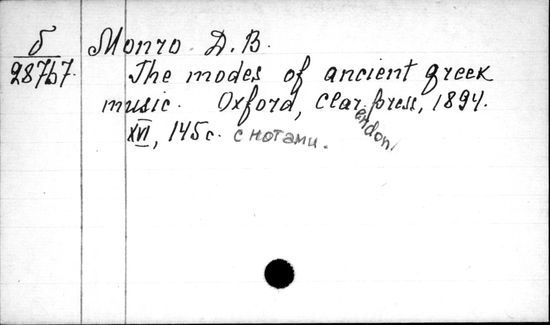 б
28767.
Monro D.B.
The modes of ancient greek
music. Oxford, Clarendon press, 1894.
XVI, 145с. с нотами.